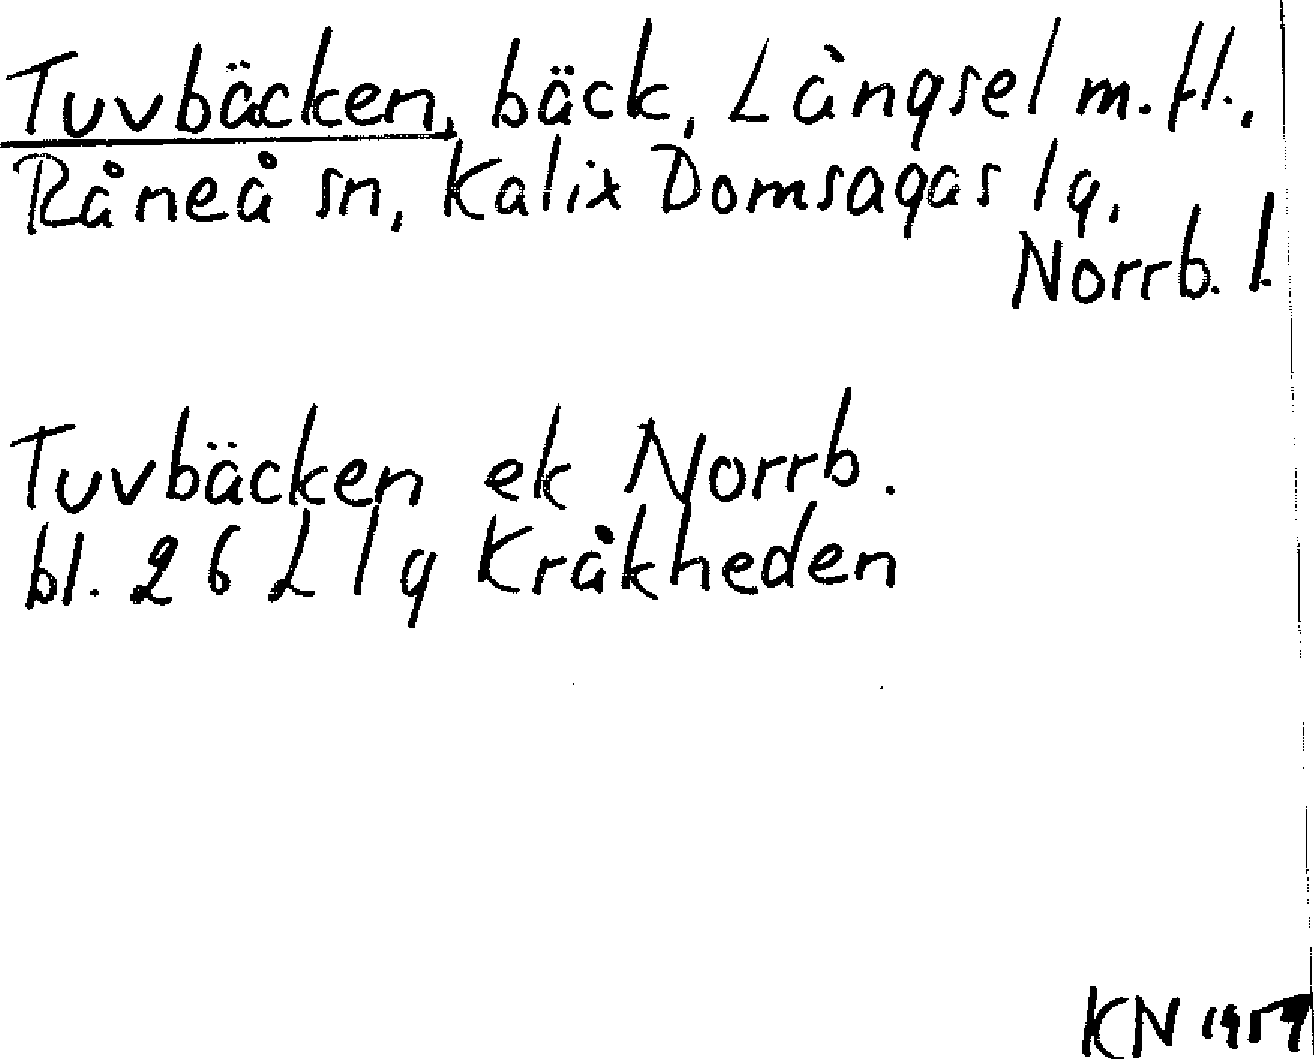 Tuvbäcken, bäck, Långsel m.fl.,
Råneå sn, Kalix Domsagas lg,
Norrb. l.
Tuvbäcken ek Norrb.
bl. 26 L l g Kråkheden
KN